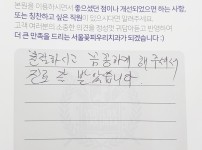 본원을 이용하시면서 좋으셨던 점이나 개선되었으면 하는 사항,
또는 칭찬하고 싶은 직원이 있으시다면 알려주세요.
고객 여러분의 소중한 의견을 적극 반영하여
더 큰 만족을 드리는 서울꽃피우리치과가 되겠습니다 :)
친절하시고 꼼꼼하게 해주셔서
진료 잘 받았습니다